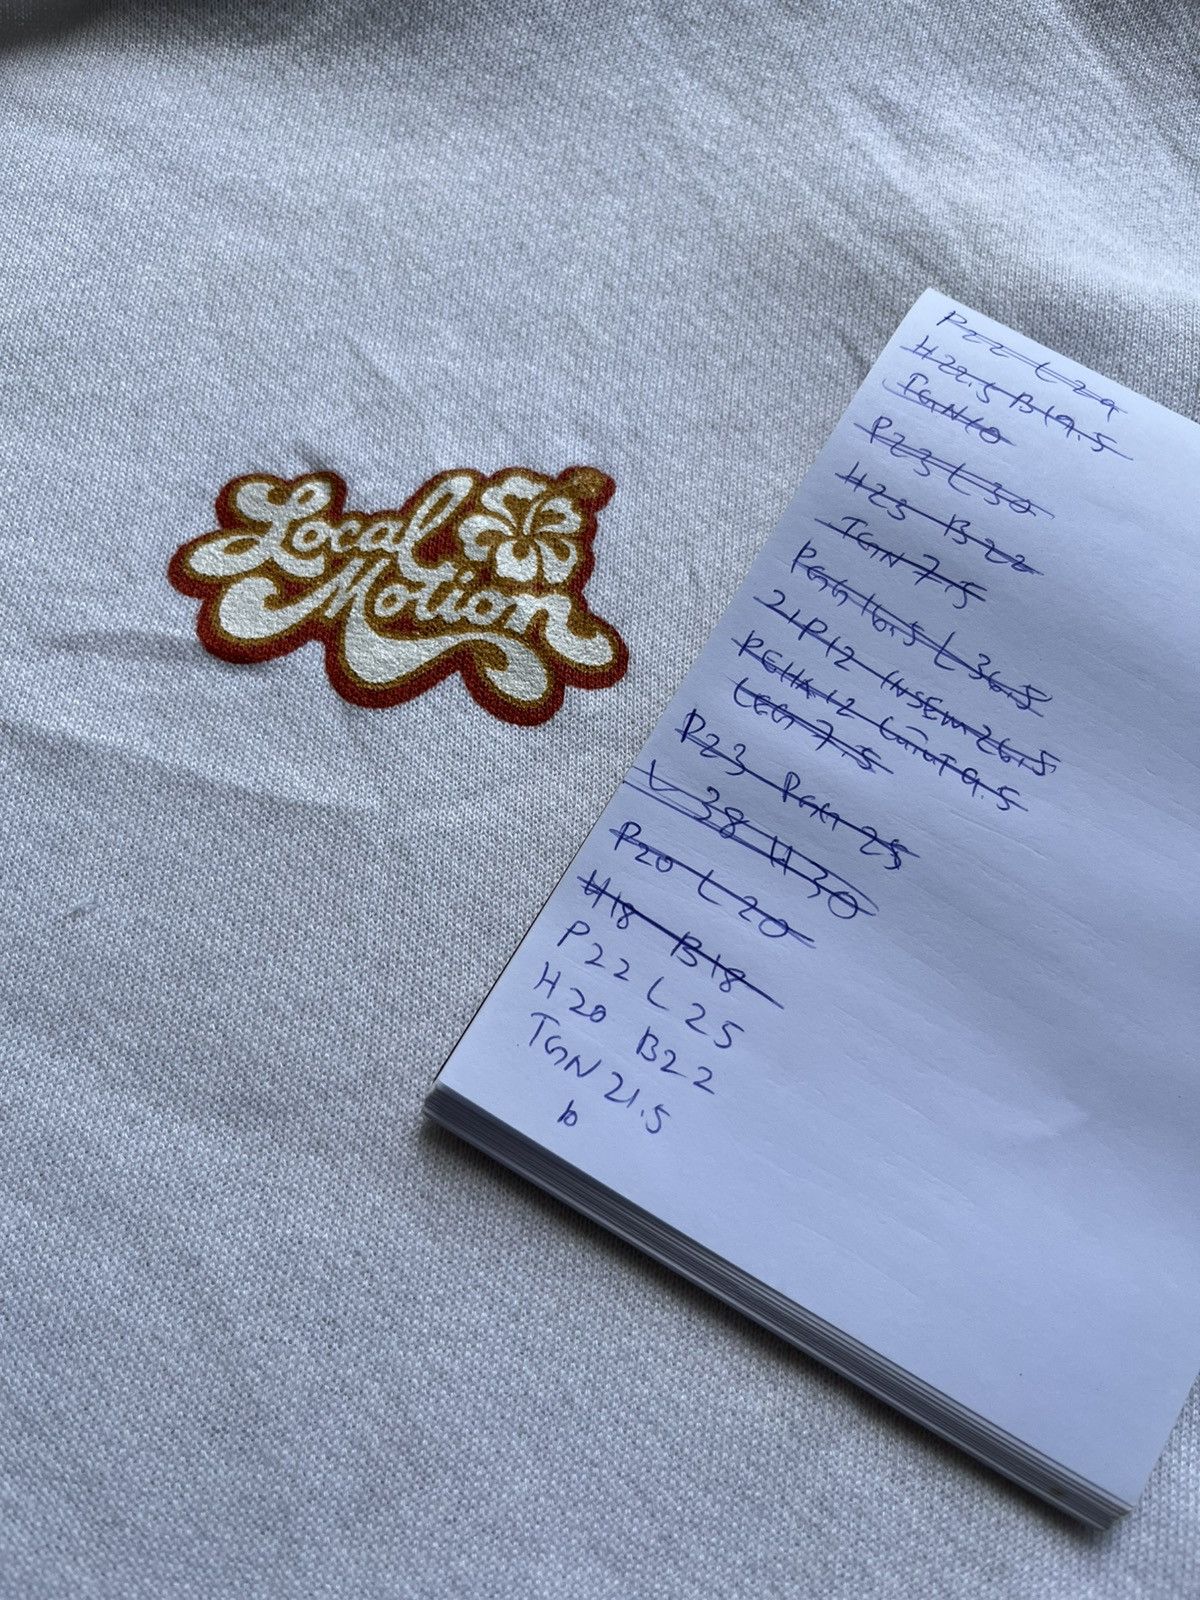 Local
Motion
P22 L 29
H22.5 B19.5
TGN10
P23 L 30
H23 B22
TGN 7.5
PGG 16.5 L 36.5
21P12 INSEM26.5
PGHA12 9.5
LEG 7.5
P23 PGG 25
L 38 H30
P20 L 20
H18 B18
P22 L 25
H 20 B22
TGN 21.5
b